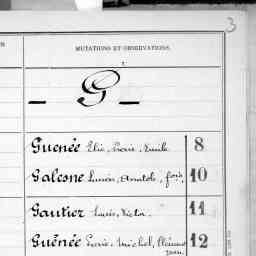 3
MUTATIONS ET OBSERVATIONS.
1
— G —
Guenée Elie, Pierre, Emile 8
Galesne Lucien, Anatole, 10
Gautier Louis, Victor. 11
Guénée Pierre, Michel, Clément 12